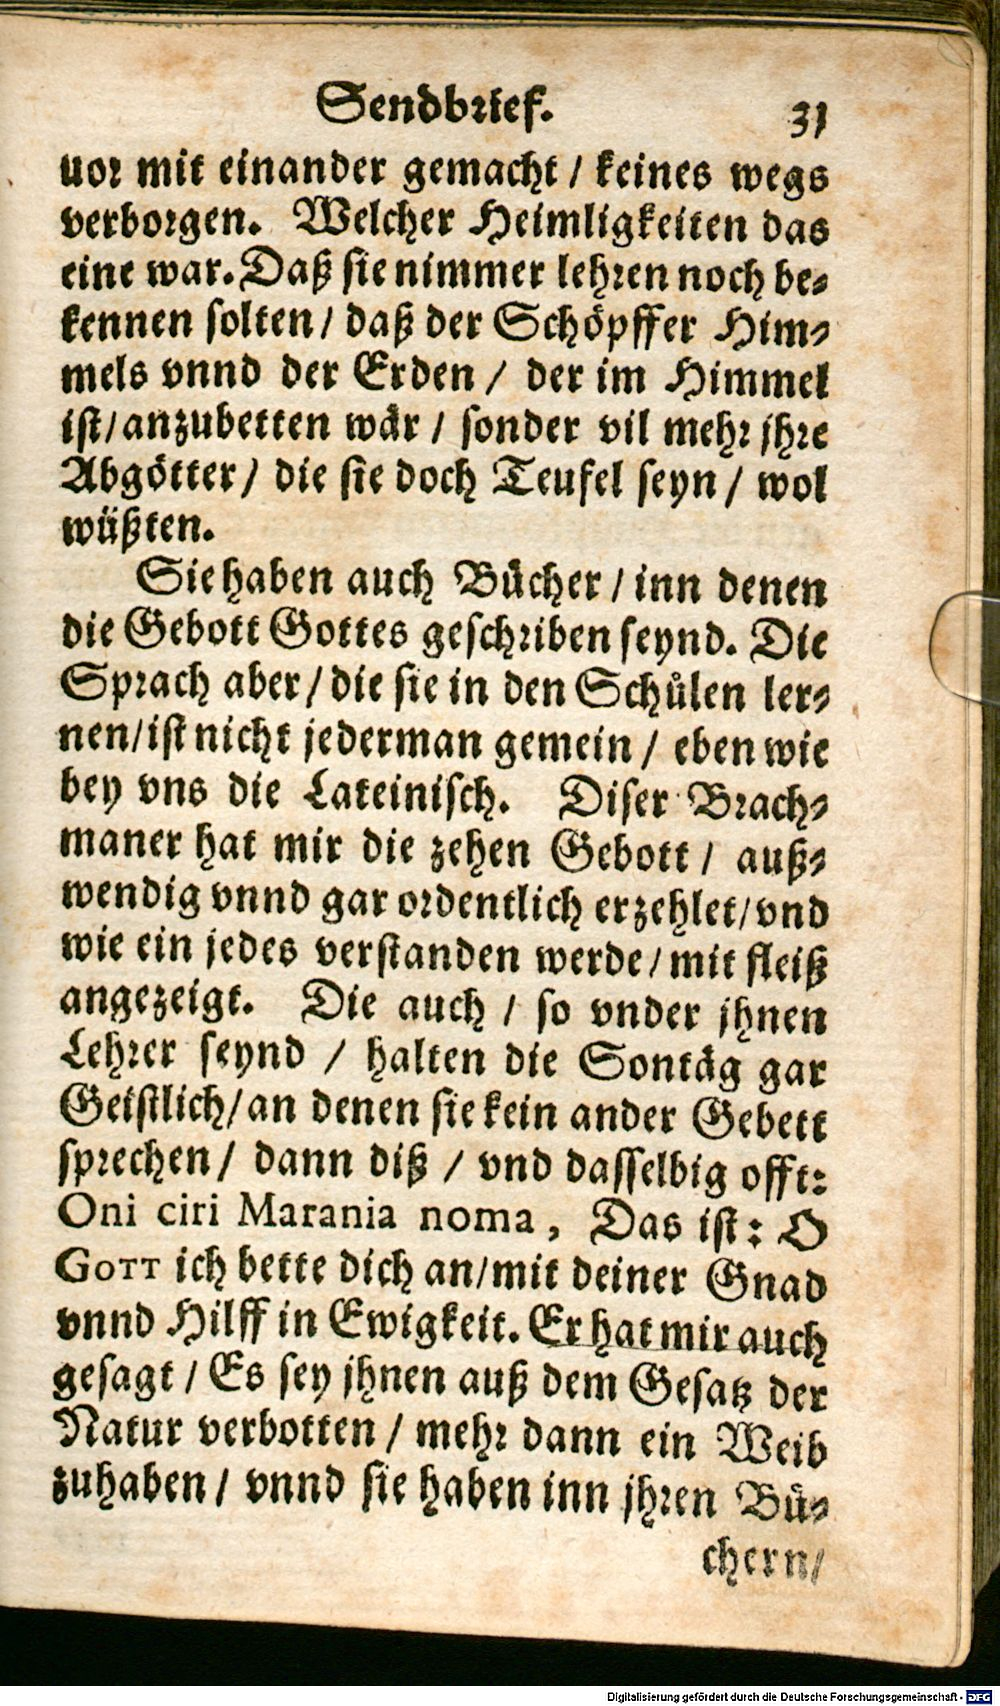 Sendbrief. 31
uor mit einander gemacht / keines wegs
verborgen. Welcher Heimligkeiten das
eine war. Daß sie nimmer lehren noch be-
kennen solten / daß der Schöpffer Him-
mels vnnd der Erden / der im Himmel
ist / anzubetten wär / sonder vil mehr jhre
Abgötter / die sie doch Teufel seyn / wol
wüßten.
Sie haben auch Bücher / inn denen
die Gebott Gottes geschriben seynd. Die
Sprach aber / die sie in den Schůlen ler-
nen / ist nicht jederman gemein / eben wie
bey vns die Lateinisch. Diser Brach-
maner hat mir die zehen Gebott / auß-
wendig vnnd gar ordentlich erzehlet / vnd
wie ein jedes verstanden werde / mit fleiß
angezeigt. Die auch / so vnder jhnen
Lehrer seynd / halten die Sontäg gar
Geistlich / an denen sie kein ander Gebett
sprechen / dann diß / vnd dasselbig offt:
Oni ciri Marania noma, Das ist: O
GOTT ich bette dich an / mit deiner Gnad
vnnd Hilff in Ewigkeit. Er hat mir auch
gesagt / Es sey jhnen auß dem Gesatz der
Natur verbotten / mehr dann ein Weib
zuhaben / vnnd sie haben inn jhren Bü-
chern /
Digitalisierung gefördert durch die Deutsche Forschungsgemeinschaft - DFG